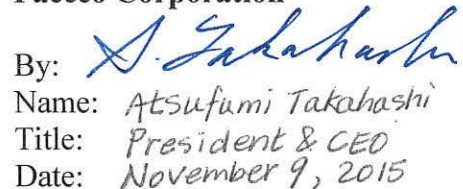 Paceco Corporation
By: A. Takahashi
Name: Atsufumi Takahashi
Title: President & CEO
Date: November 9, 2015